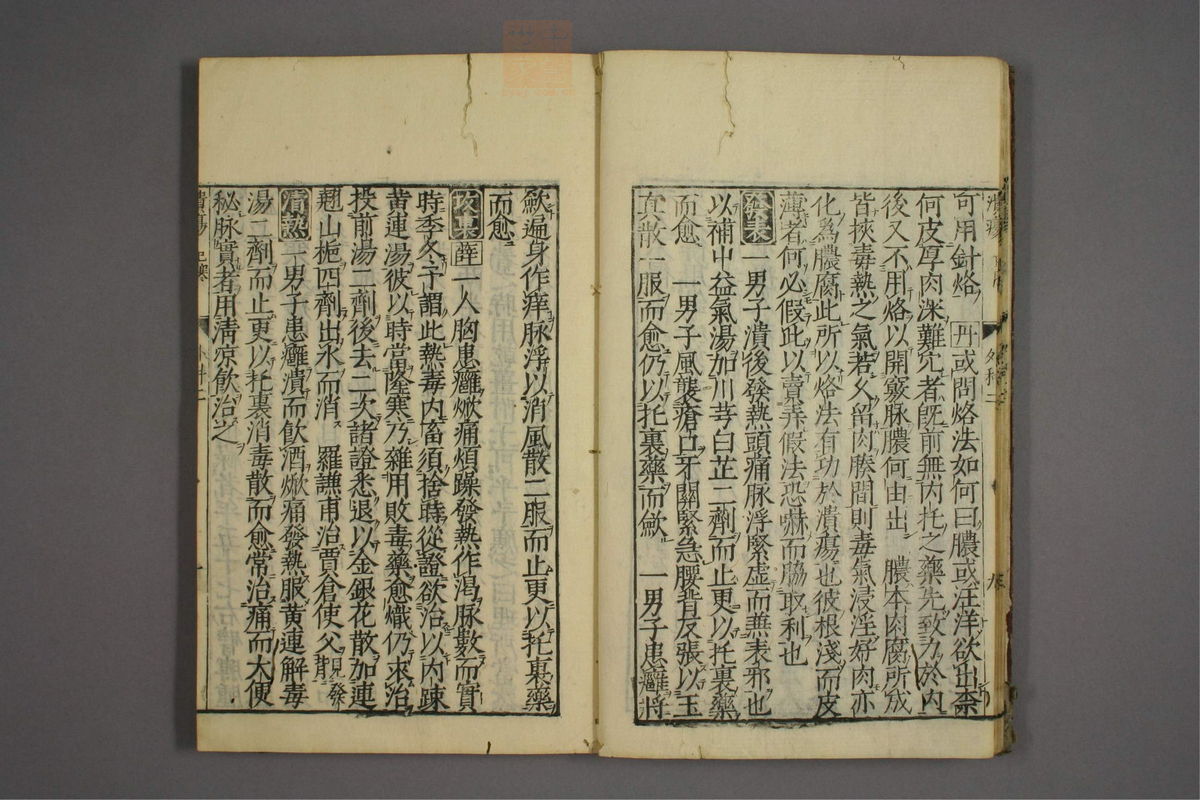 可用針烙 丹或問烙法如何曰膿或汪洋欲出柰
何皮厚肉深難宂者旣前無內托之藥先致力於內
後又不用烙以開竅脉膿何由出 膿本肉腐所成
皆挾毒熱之氣若乆留肉腠間則毒氣浸淫好肉亦
化為膿腐此所以烙法有功於潰瘍也彼根淺而皮
薄者何必假此以賣弄假法恐嚇而脇取利也
發表 一男子潰後發熱頭痛脉浮緊虛而兼表邪也
以補中益氣湯加川芎白芷二劑而止更以托裏藥
而愈 一男子風襲瘡口牙關緊急腰背反張以玉
真散一服而愈仍以托裏藥而歛 一男子患癰將
歛遍身作痒脉浮以消風散二服而止更以托裏藥
而愈
攻裏 薛 一人胸患癰焮痛煩躁發熱作渴脉數而實
時季冬予謂此熱毒內畜須捨時從證欲治以內疎
黃連湯彼以時當隆寒乃雜用敗毒藥愈熾仍求治
投前湯二劑後去二次諸證悉退以金銀花散加連
翹山梔四劑出水而消 羅謙甫治賈倉使父 見發背
清熱 一男子患癰潰而飮酒焮痛發熱服黃連解毒
湯二劑而止更以托裏消毒散而愈常治痛而大便
秘脉實者用清凉飮治之
外科二